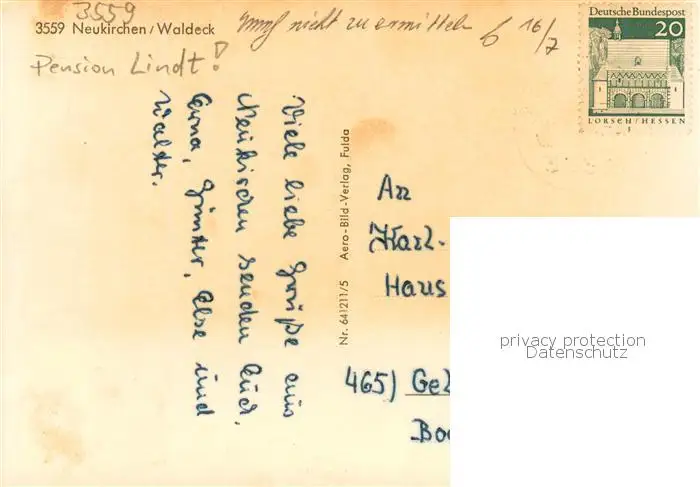 3559
3559 Neukirchen/Waldeck
nicht zu ermitteln
16/7
Pension Lindt!
Deutsche Bundespost
20
LORSCH/HESSEN
Viele liebe Grüße aus
Neukirchen senden Euch,
Erna, Günter, Else und
Walter.
Nr. 641211/5 Aero-Bild-Verlag, Fulda
An
Karl-
Haus
465) Gel
Boc
privacy protection
Datenschutz